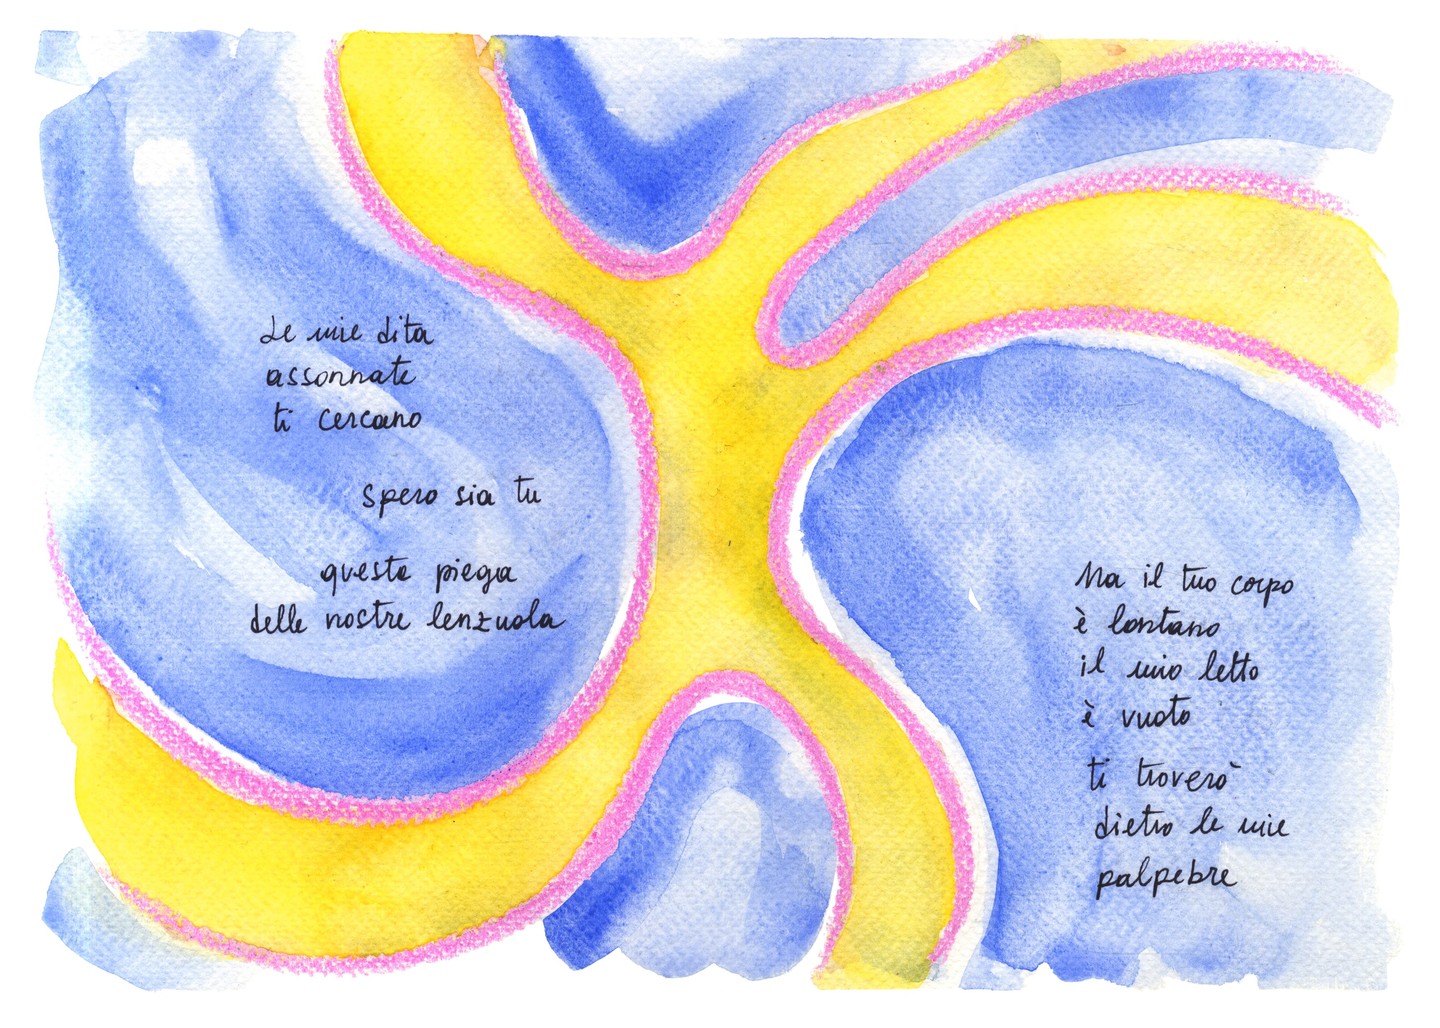 Le mie dita
assonnate
ti cercano
spero sia tu
questa piega
delle nostre lenzuola
Ma il tuo corpo
è lontano
il mio letto
è vuoto
ti troverò
dietro le mie
palpebre